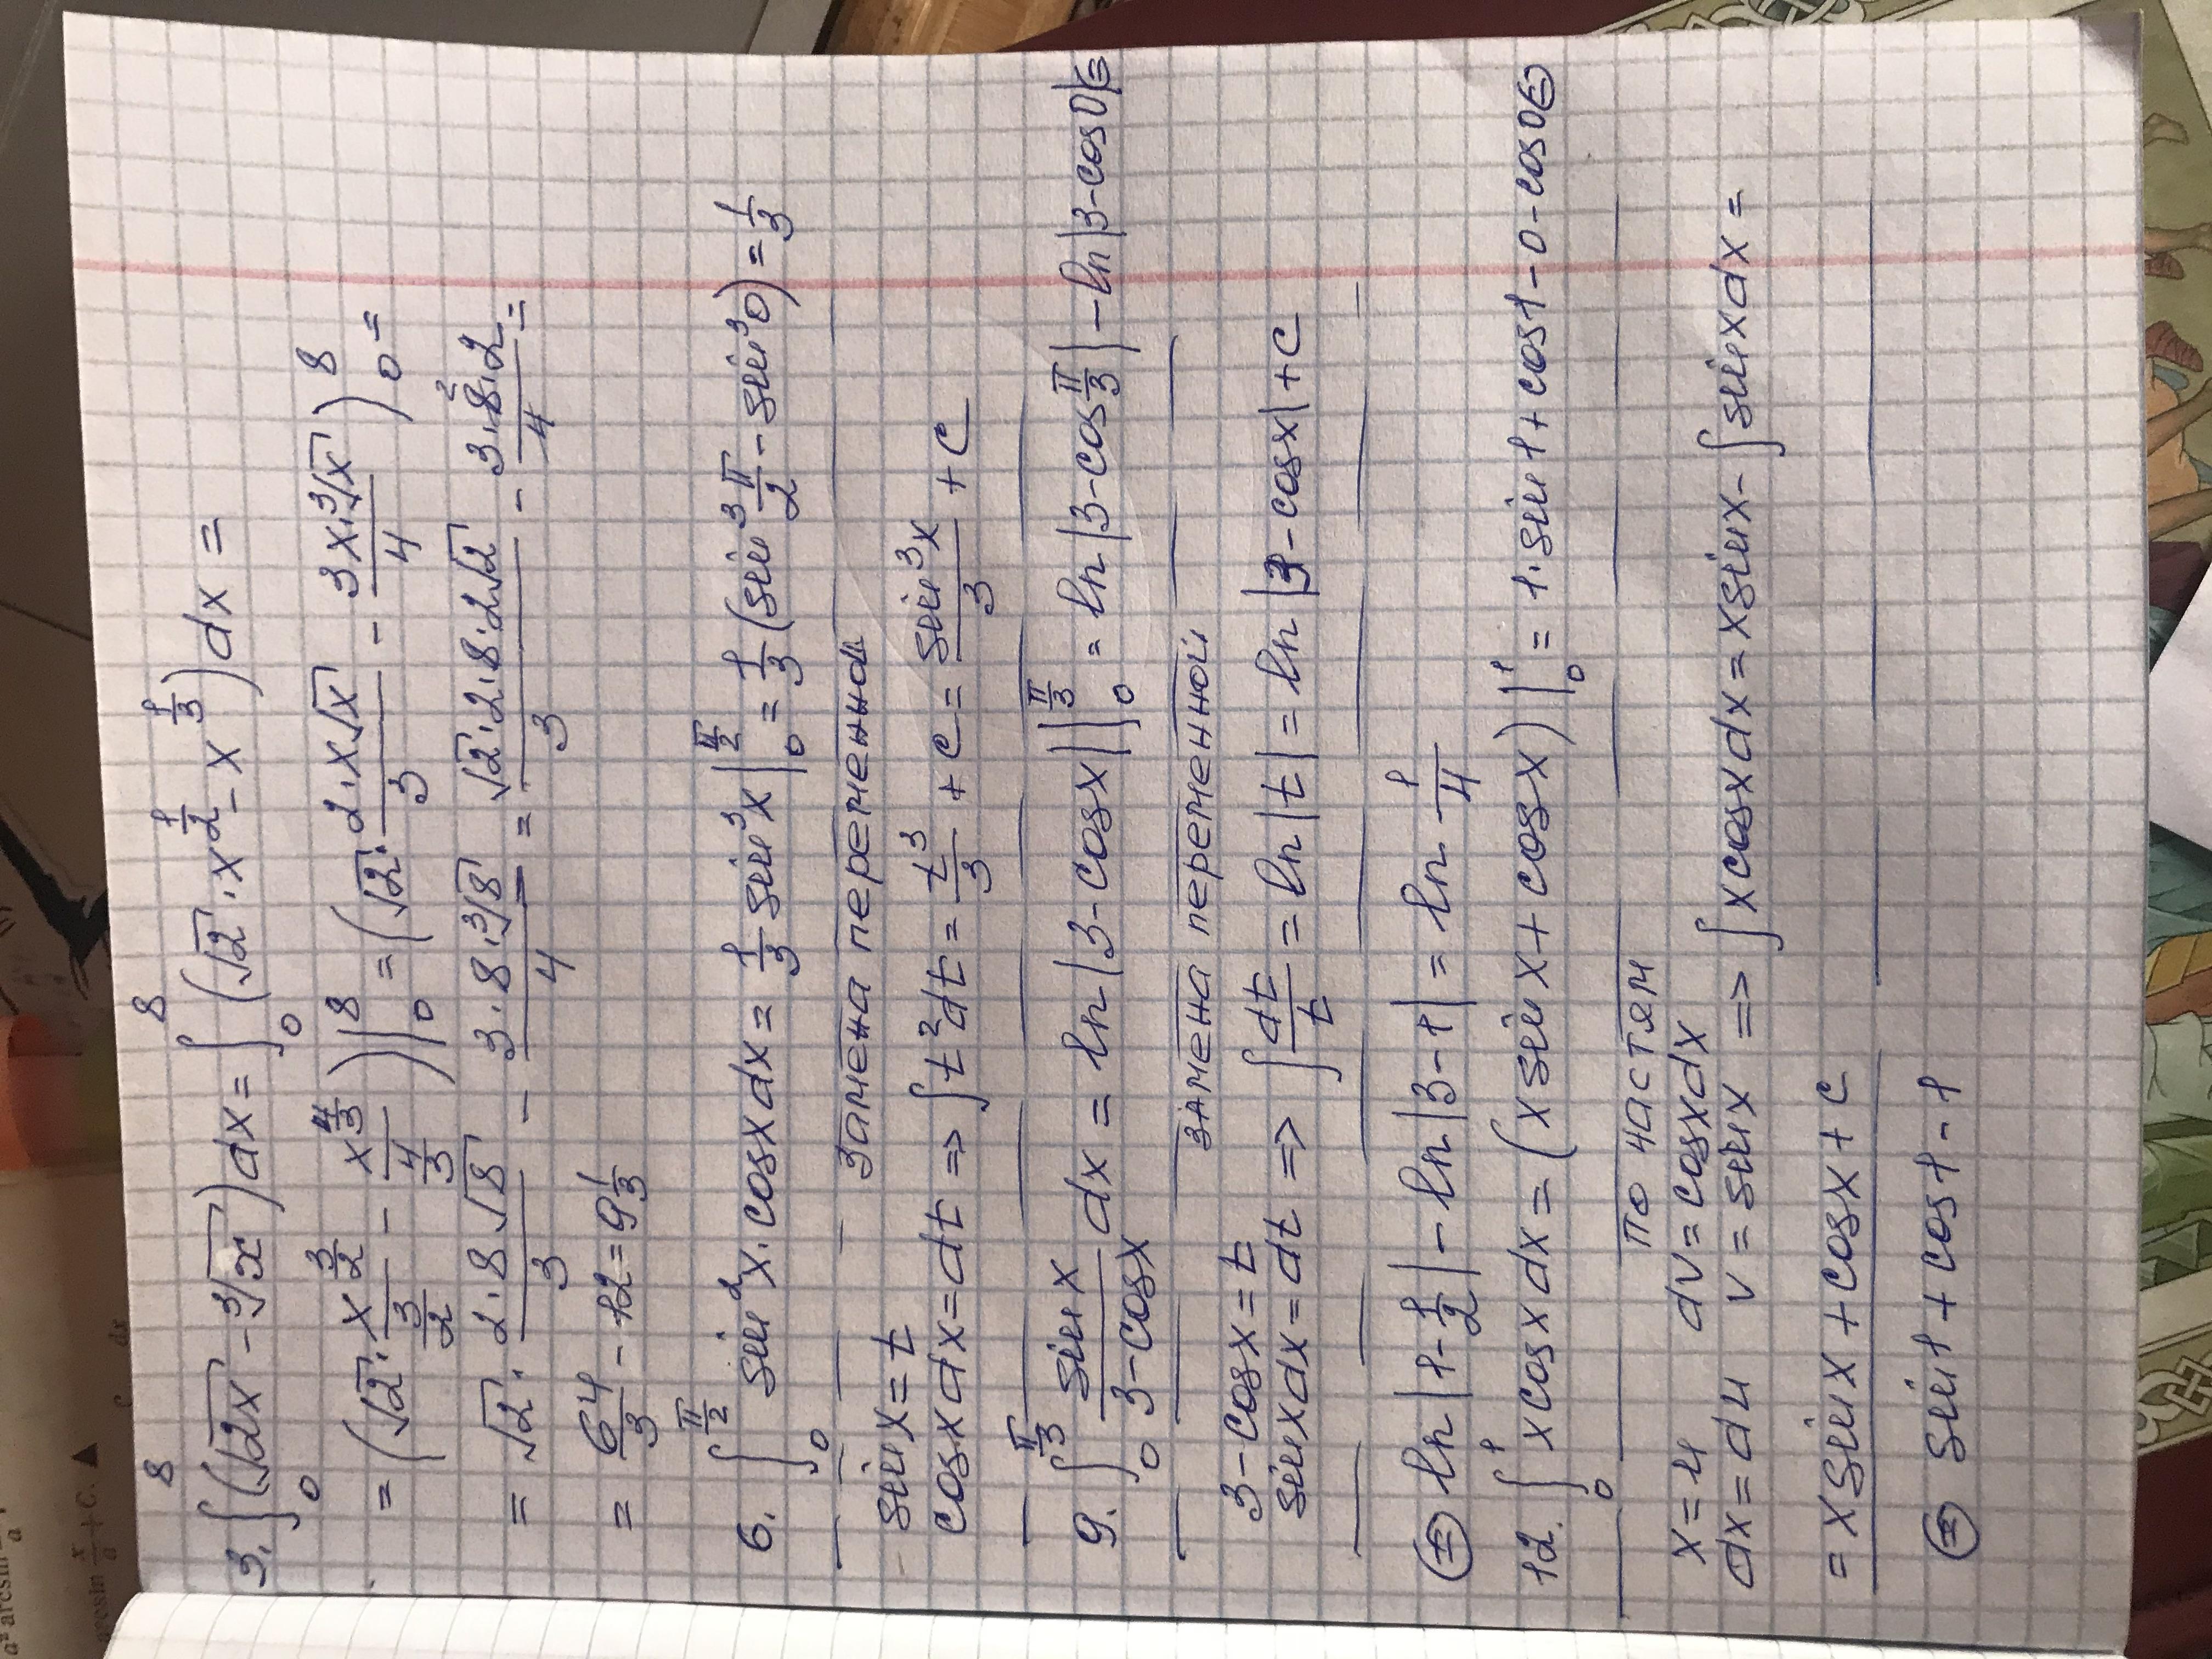 3. ∫₀⁸ (√2x - ³√x) dx = ∫₀⁸ (√2 · x^(1/2) - x^(1/3)) dx =
= (√2 · x^(3/2)/(3/2) - x^(4/3)/(4/3)) |₀⁸ = (√2 · 2·x√x/3 - 3x·³√x/4)₀⁸ =
= √2 · 2·8√8/3 - 3·8·³√8/4 = √2·2·8·2√2/3 - 3·8²·2/4 =
= 64/3 - 12 = 9 1/3
6. ∫₀^(π/2) sin²x · cosx dx = 1/3 sin³x |₀^(π/2) = 1/3 (sin³ π/2 - sin³0) = 1/3
замена переменной
sinx = t
cosxdx = dt => ∫t²dt = t³/3 + c = sin³x/3 + c
9. ∫₀^(π/3) sinx/(3-cosx) dx = ln|3-cosx| |₀^(π/3) = ln|3-cos π/3| - ln|3-cos0| =
замена переменной
3-cosx = t
sinxdx = dt => ∫dt/t = ln|t| = ln|3-cosx| + c
= ln|1-1/2| - ln|3-1| = ln 1/4
12. ∫₀¹ xcosx dx = (x sinx + cosx)|₀¹ = 1·sin1 + cos1 - 0 - cos0 =
по частям
x = u dv = cosxdx
dx = du v = sinx => ∫xcosxdx = xsinx - ∫sinxdx =
= xsinx + cosx + c
= sin1 + cos1 - 1